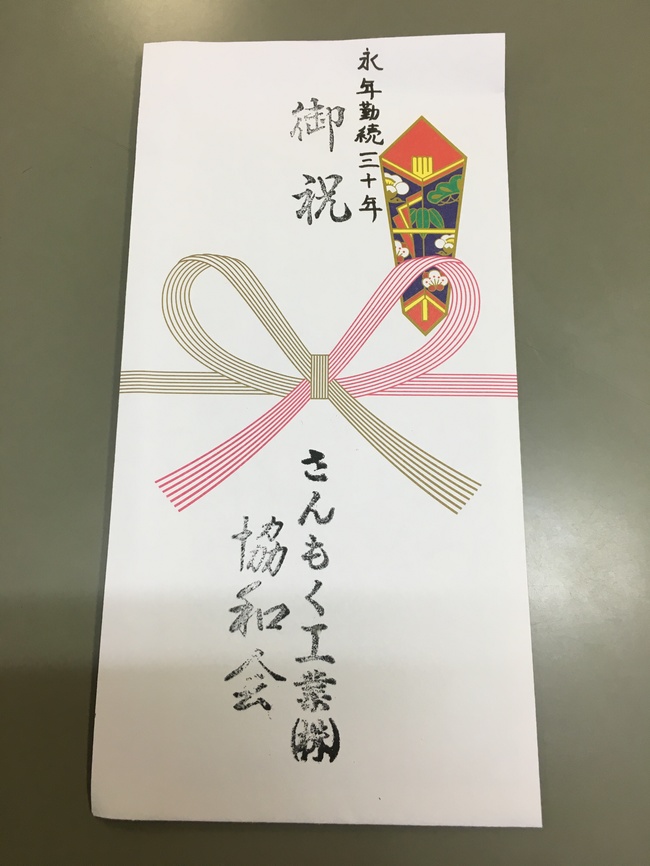 永年勤続三十年
御祝
さんもく工業㈱
協和会